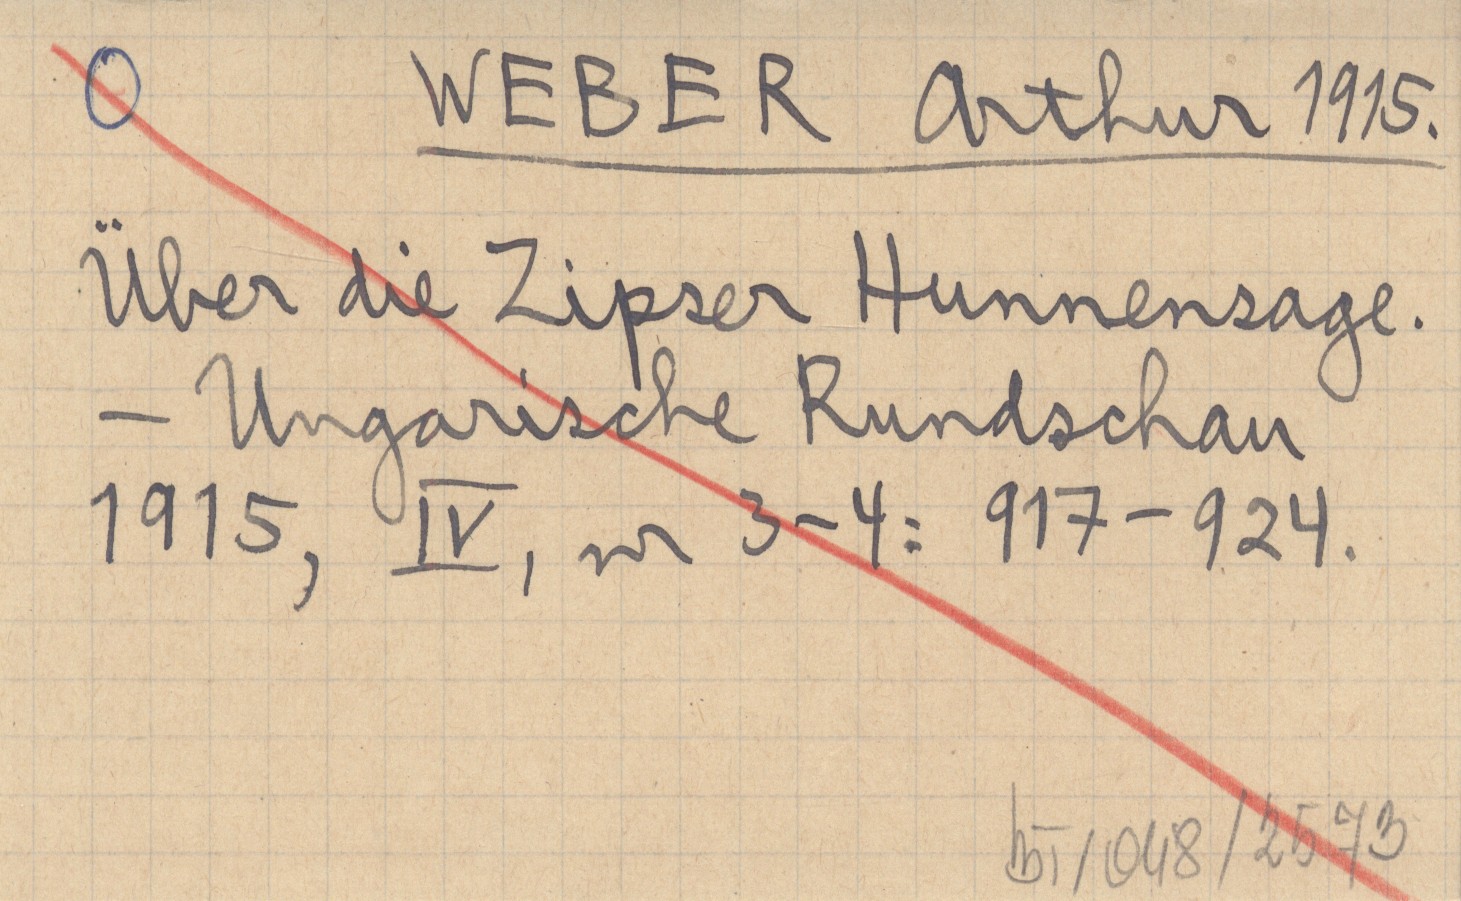 O WEBER Arthur 1915.
Über die Zipser Hunnensage.
— Ungarische Rundschau
1915, IV, nr 3-4: 917-924.
bI/048/2573